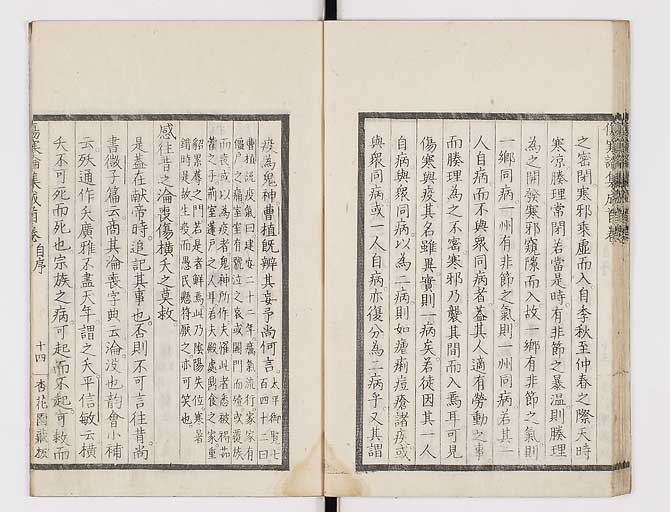 之密閉寒邪乘虛而入自季秋至仲春之際天時
寒凉腠理常閉若當是時有非節之暴温則腠理
為之開發寒邪窺隙而入故一鄉有非節之氣則
一鄉同病一州有非節之氣則一州同病若其一
人自病而不與眾同病者葢其人適有勞動之事
而腠理為之不密寒邪乃襲其間而入焉耳可見
傷寒與疫其名雖異實則一病矣若徒因其一人
自病與眾同病以為二病則如瘧痢痘瘡諸疾或
與眾同病或一人自病亦復分為二病乎又其謂
疫為鬼神曹植既辨其妄予尚何言
太平御覽七百四十二曰
曹植說疫氣曰建安二十二年癘氣流行家家有
僵尸之痛室室有號泣之哀或闔門而殪或覆族
而喪或以為疫者鬼神所作夫罹此者悉被褐茹
藿之子荊室蓬戶之人耳若夫殿處鼎食之家重
貂累蓐之門若是者鮮焉此乃陰陽失位寒暑
錯時是故生疫而愚民懸符厭之亦可笑也
感往昔之淪喪傷橫夭之莫救
是葢在獻帝時追記其事也否則不可言往昔尚
書微子篇云商其淪喪字典云淪沒也韵會小補
云殀通作夭廣雅不盡天年謂之夭平信敏云橫
夭不可死而死也宗族之病可起而不起可救而
傷寒論集成首卷 自序
十四 杏花園藏板